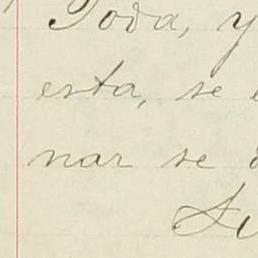 Toda, y
esta, se
nar se